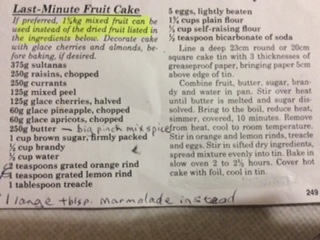 Last-Minute Fruit Cake
If preferred, 1½kg mixed fruit can be
used instead of the dried fruit listed in
the ingredients below. Decorate cake
with glace cherries and almonds, be-
fore baking, if desired.
375g sultanas
250g raisins, chopped
250g currants
125g mixed peel
125g glace cherries, halved
60g glace pineapple, chopped
60g glace apricots, chopped
250g butter – big pinch mix spice
1 cup brown sugar, firmly packed
½ cup brandy
½ cup water
2 teaspoons grated orange rind
1 teaspoon grated lemon rind
1 tablespoon treacle
1 large tblsp. marmalade instead
5 eggs, lightly beaten
1¾ cups plain flour
⅓ cup self-raising flour
½ teaspoon bicarbonate of soda
Line a deep 23cm round or 20cm
square cake tin with 3 thicknesses of
greaseproof paper, bringing paper 5cm
above edge of tin.
Combine fruit, butter, sugar, bran-
dy and water in pan. Stir over heat
until butter is melted and sugar dis-
solved. Bring to the boil, reduce heat,
simmer, covered, 10 minutes. Remove
from heat, cool to room temperature.
Stir in orange and lemon rinds, treacle
and eggs. Stir in sifted dry ingredients,
spread mixture evenly into tin. Bake in
slow oven 2 to 2½ hours. Cover hot
cake with foil, cool in tin.
249